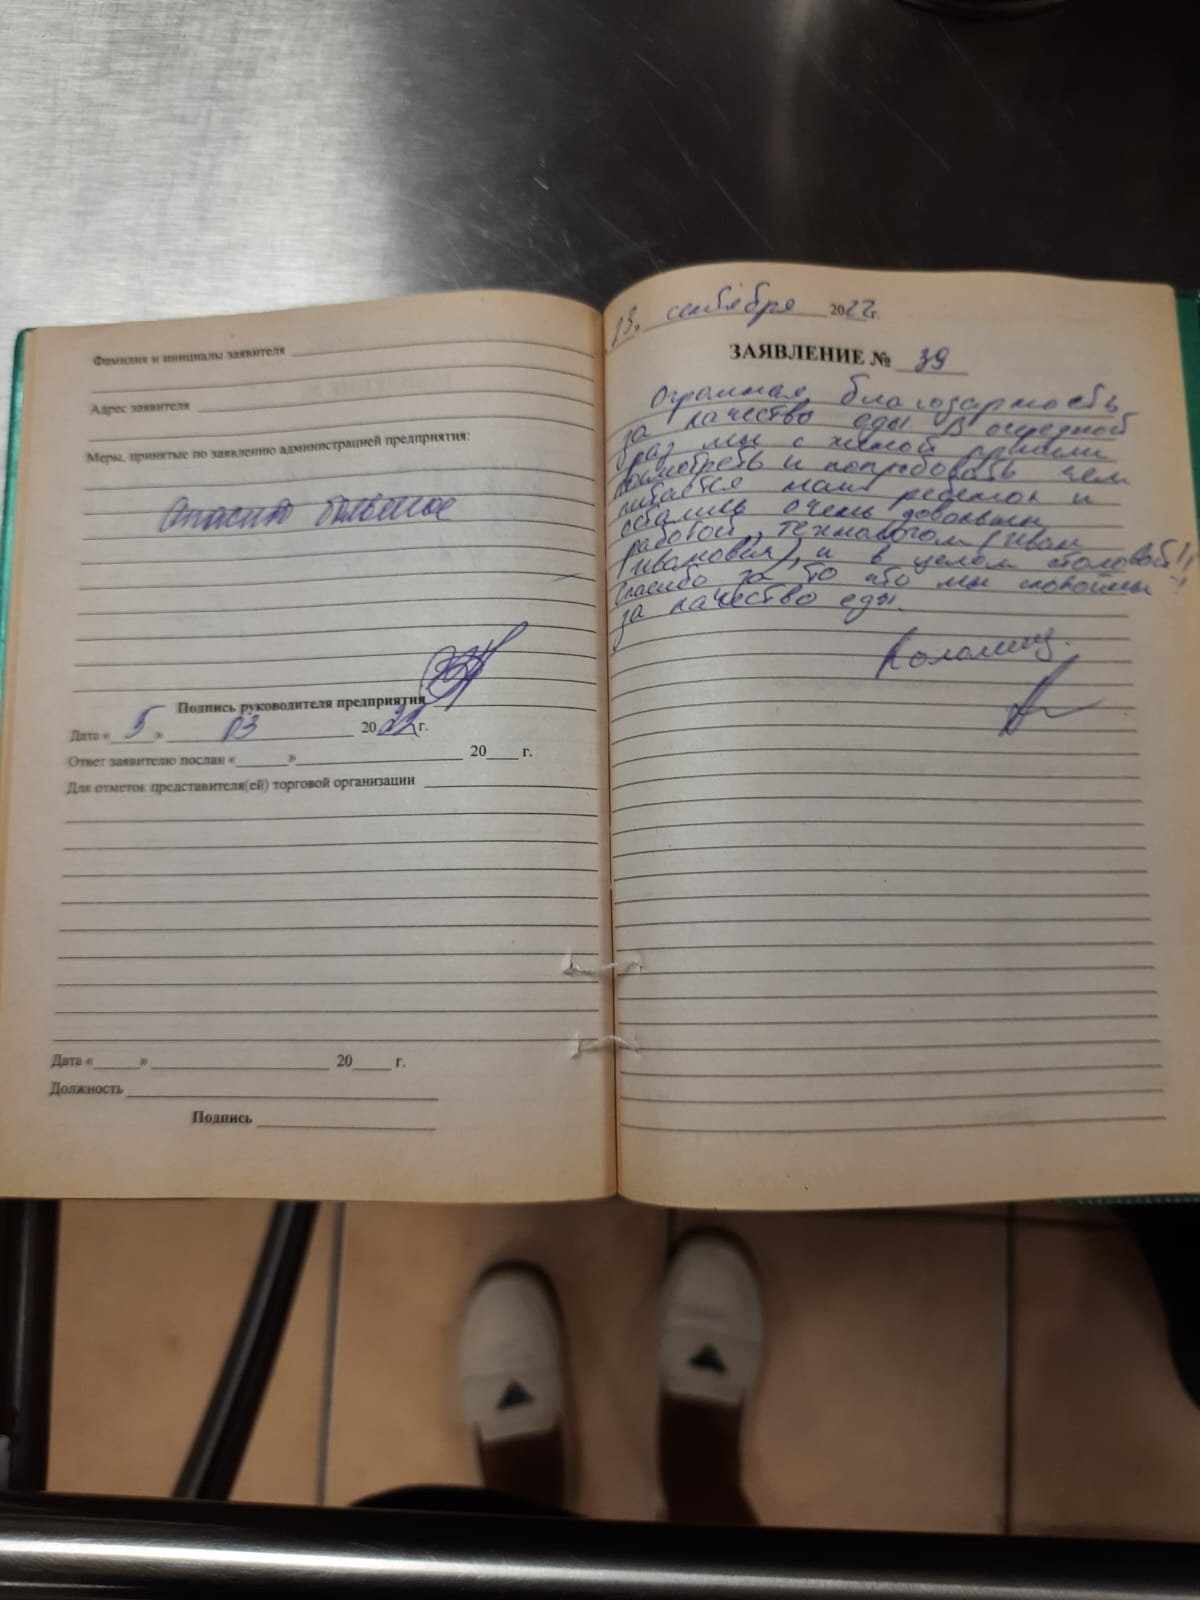 Фамилия и инициалы заявителя
Адрес заявителя
Меры, принятые по заявлению администрацией предприятия:
Спасибо большое
Подпись руководителя предприятия
Дата « 5 » 03 2022 г.
Ответ заявителю послан « » 20 г.
Для отметок представителя(ей) торговой организации
Дата « » 20 г.
Должность
Подпись
23. сентября 2022 г.
ЗАЯВЛЕНИЕ № 39
Огромная благодарность
за качество еды. В очередной
раз мы с женой пришли
посмотреть и попробовать чем
питается наш ребенок и
остались очень довольны
работой, технологом (Иван
Иванович), и в целом столовой!!
Спасибо за то что мы спокойны
за качество еды.